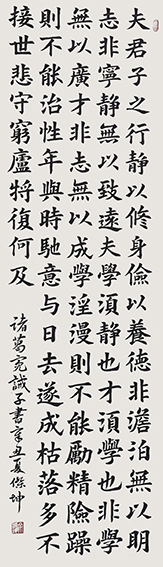 夫君子之行靜以修身儉以養德非澹泊無以明
志非寧靜無以致遠夫學湏靜也才湏學也非學
無以廣才非志無以成學淫漫則不能勵精險躁
則不能治性年與時馳意與日去遂成枯落多不
接世悲守窮廬將復何及
諸葛亮誡子書辛丑夏坤